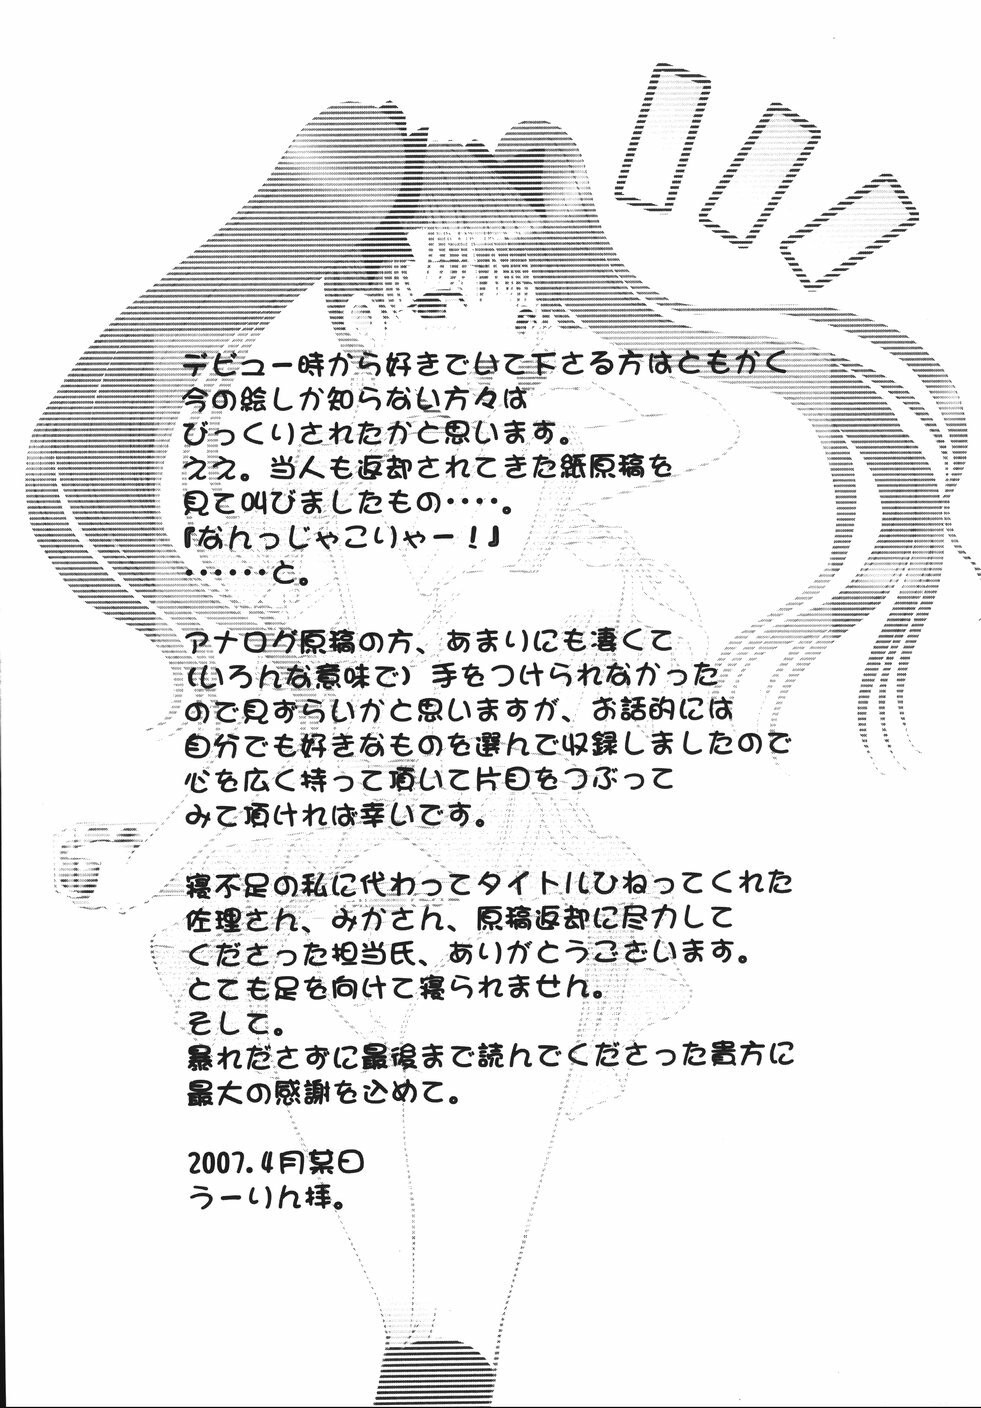 デビュー時から好きでいて下さる方はともかく
今の絵しか知らない方々は
びっくりされたかと思います。
ええ。当人も返却されてきた紙原稿を
見て叫びましたもの‥‥。
『なんっじゃこりゃー！』
‥‥‥と。
アナログ原稿の方、あまりにも凄くて
(いろんな意味で) 手をつけられなかった
ので見ずらいかと思いますが、お話的には
自分でも好きなものを選んで収録しましたので
心を広く持って頂いて片目をつぶって
みて頂ければ幸いです。
寝不足の私に代わってタイトルひねってくれた
佐理さん、みかさん、原稿返却に尽力して
くださった担当氏、ありがとうございます。
とても足を向けて寝られません。
そして。
暴れださずに最後まで読んでくださった貴方に
最大の感謝を込めて。
2007.4月某日
うーりん拝。